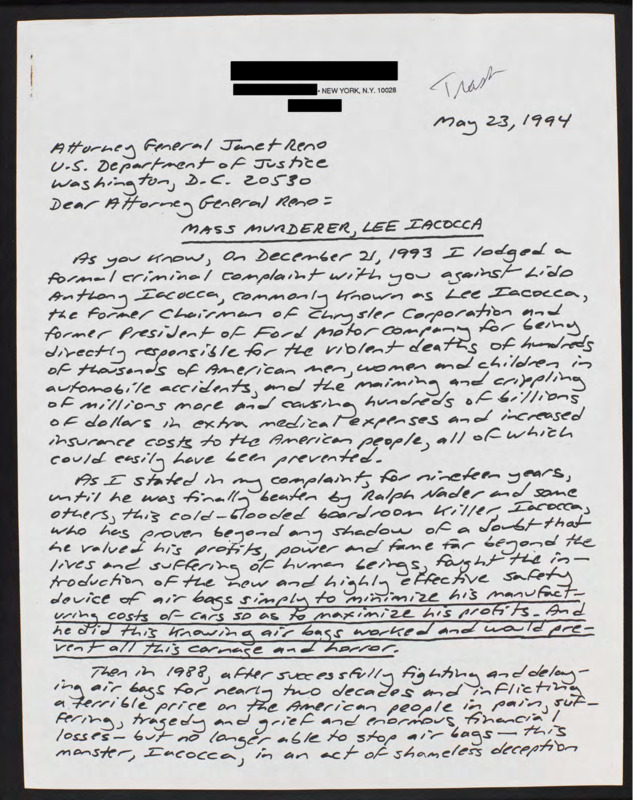 • NEW YORK, N.Y. 10028
Trash
May 23, 1994
Attorney General Janet Reno
U.S. Department of Justice
Washington, D.C. 20530
Dear Attorney General Reno:
MASS MURDERER, LEE IACOCCA
As you know, on December 21, 1993 I lodged a
formal criminal complaint with you against Lido
Anthony Iacocca, commonly known as Lee Iacocca,
the former Chairman of Chrysler Corporation and
former President of Ford Motor Company for being
directly responsible for the violent deaths of hundreds
of thousands of American men, women and children in
automobile accidents, and the maiming and crippling
of millions more and causing hundreds of billions
of dollars in extra medical expenses and increased
insurance costs to the American people, all of which
could easily have been prevented.
As I stated in my complaint, for nineteen years,
until he was finally beaten by Ralph Nader and some
others, this cold-blooded boardroom killer Iacocca,
who has proven beyond any shadow of a doubt that
he valued his profits, power and fame far beyond the
lives and suffering of human beings, fought the in-
troduction of the new and highly effective safety
device of air bags simply to minimize his manufact-
uring costs of cars so as to maximize his profits. And
he did this knowing air bags worked and would pre-
vent all this carnage and horror.
Then in 1988, after successfully fighting and delay-
ing air bags for nearly two decades and inflicting
a terrible price on the American people in pain, suf-
fering, tragedy and grief and enormous financial
losses - but no longer able to stop air bags - this
monster, Iacocca, in an act of shameless deception